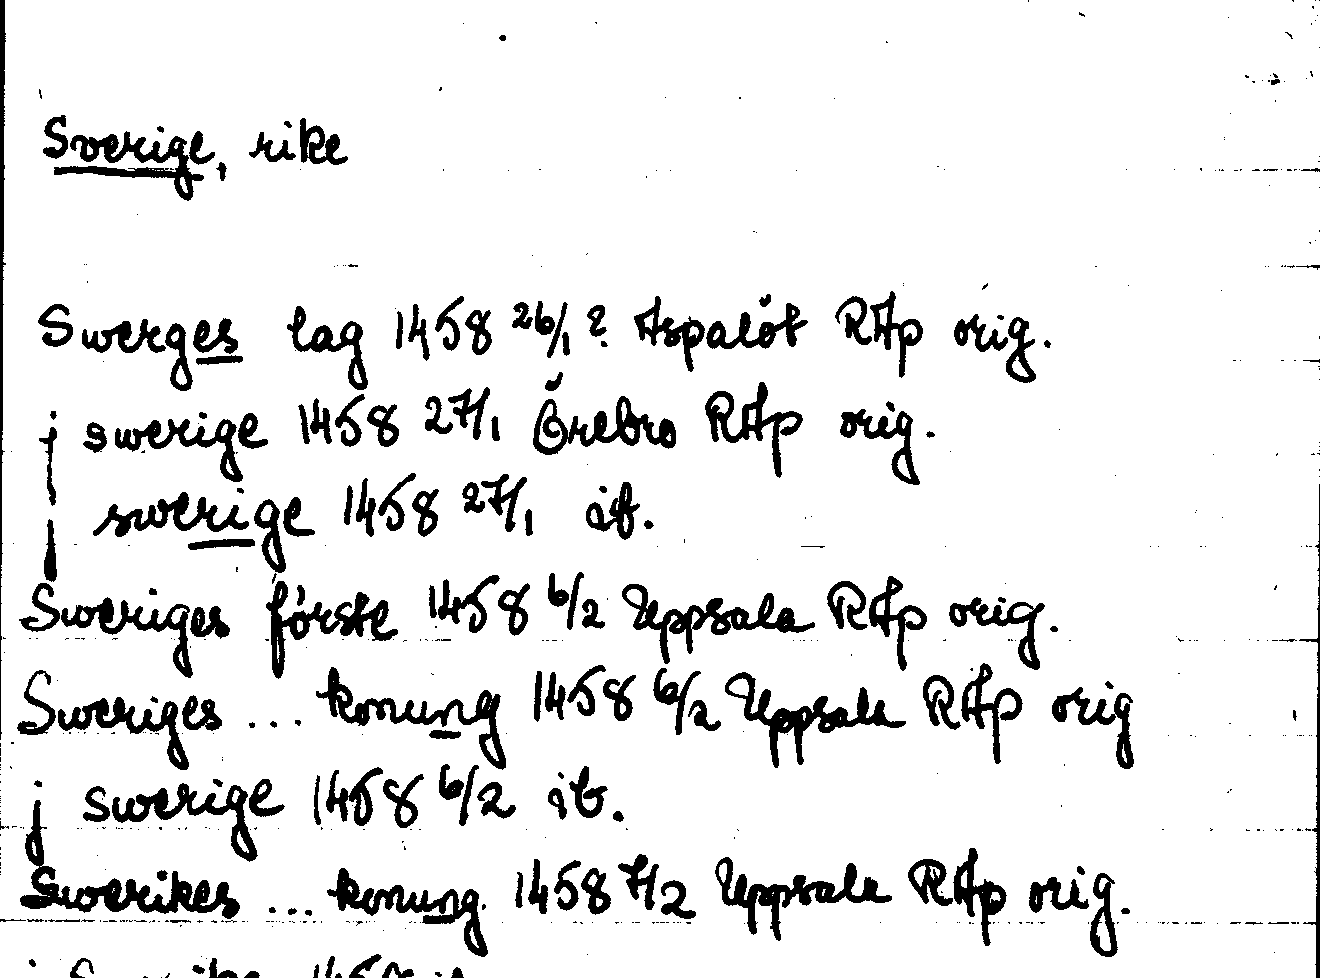 Sverige, rike
Swerges lag 1458 26/1 ? Aspalöt RAp orig.
j swerige 1458 27/1 Örebro RAp orig.
j swerige 1458 27/1 ib.
Sweriges förste 1458 6/2 Uppsala RAp orig.
Sweriges ... konung 1458 6/2 Uppsala RAp orig
j swerige 1458 6/2 ib.
Swerikes ... konung 1458 7/2 Uppsala RAp orig.